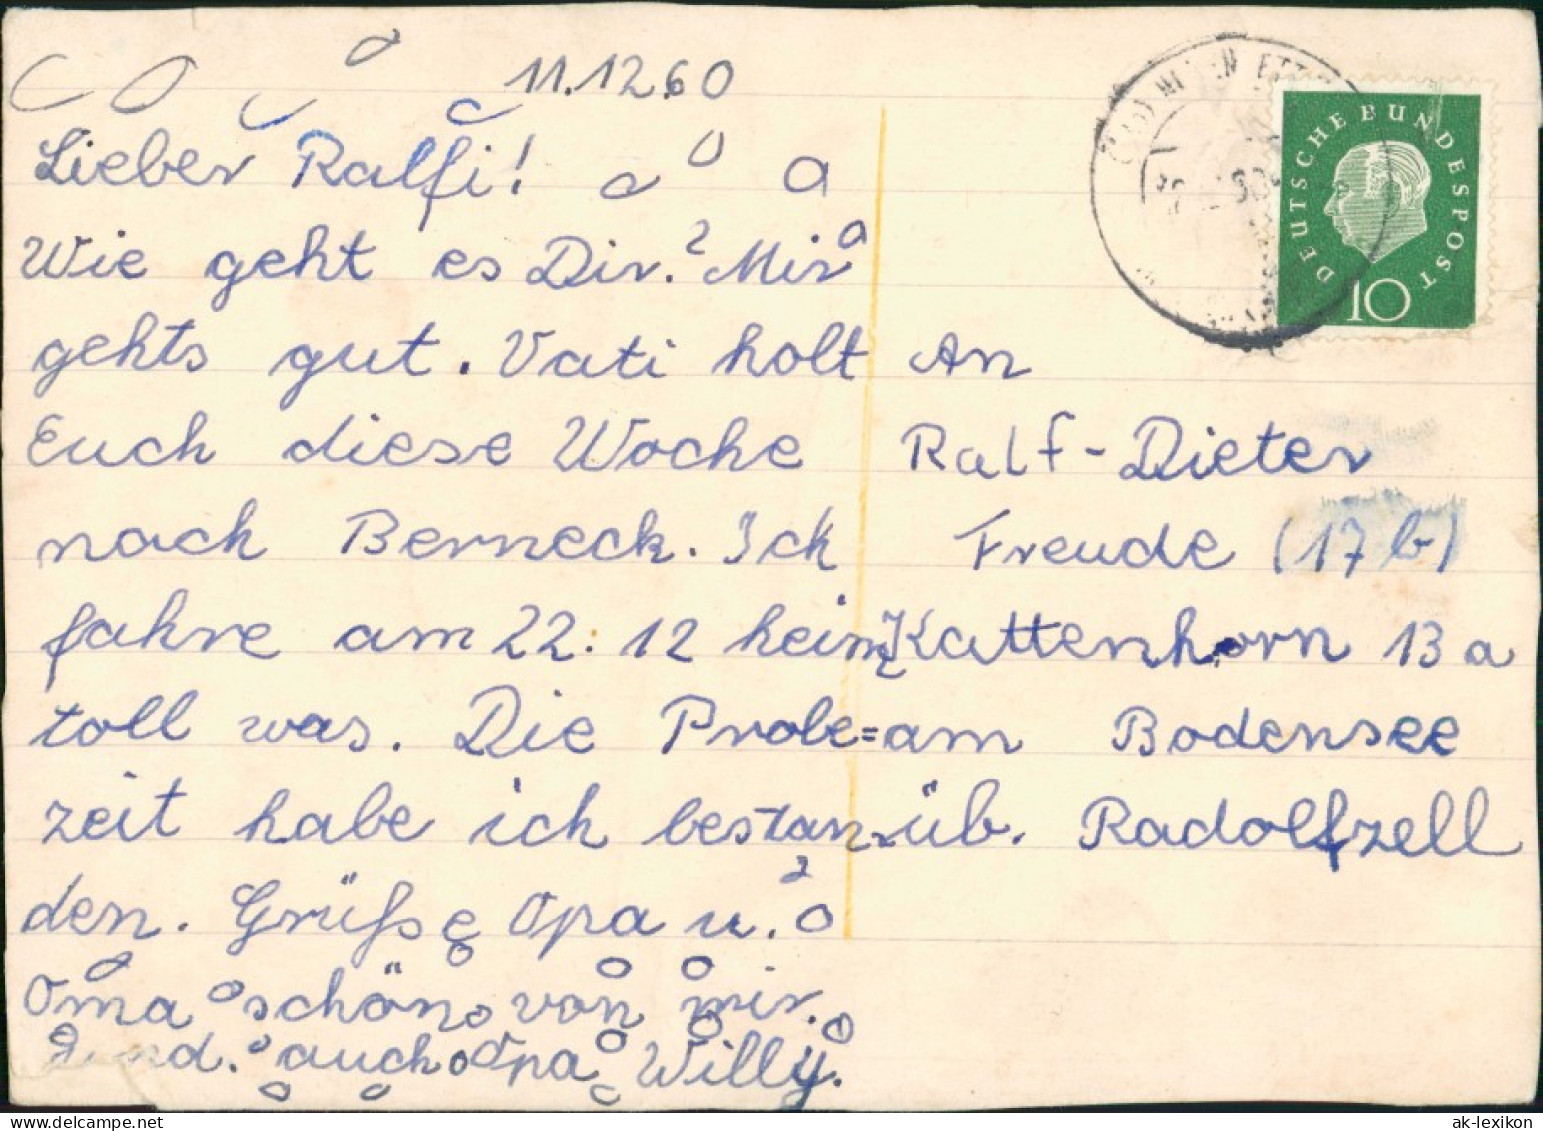 11.12.60
Lieber Ralfi!
Wie geht es Dir? Mir
gehts gut. Vati holt
Euch diese Woche
nach Berneck. Ich
fahre am 22. 12 heim
toll was. Die Probe=
zeit habe ich bestan-
den. Grüße Opa u.
Oma schön von mir.
und. auch Opa Willy.
An
Ralf-Dieter
Freude (17b)
Kattenhorn 13 a
am Bodensee
üb. Radolfzell
DEUTSCHE BUNDESPOST
10
ak-lexikon.com